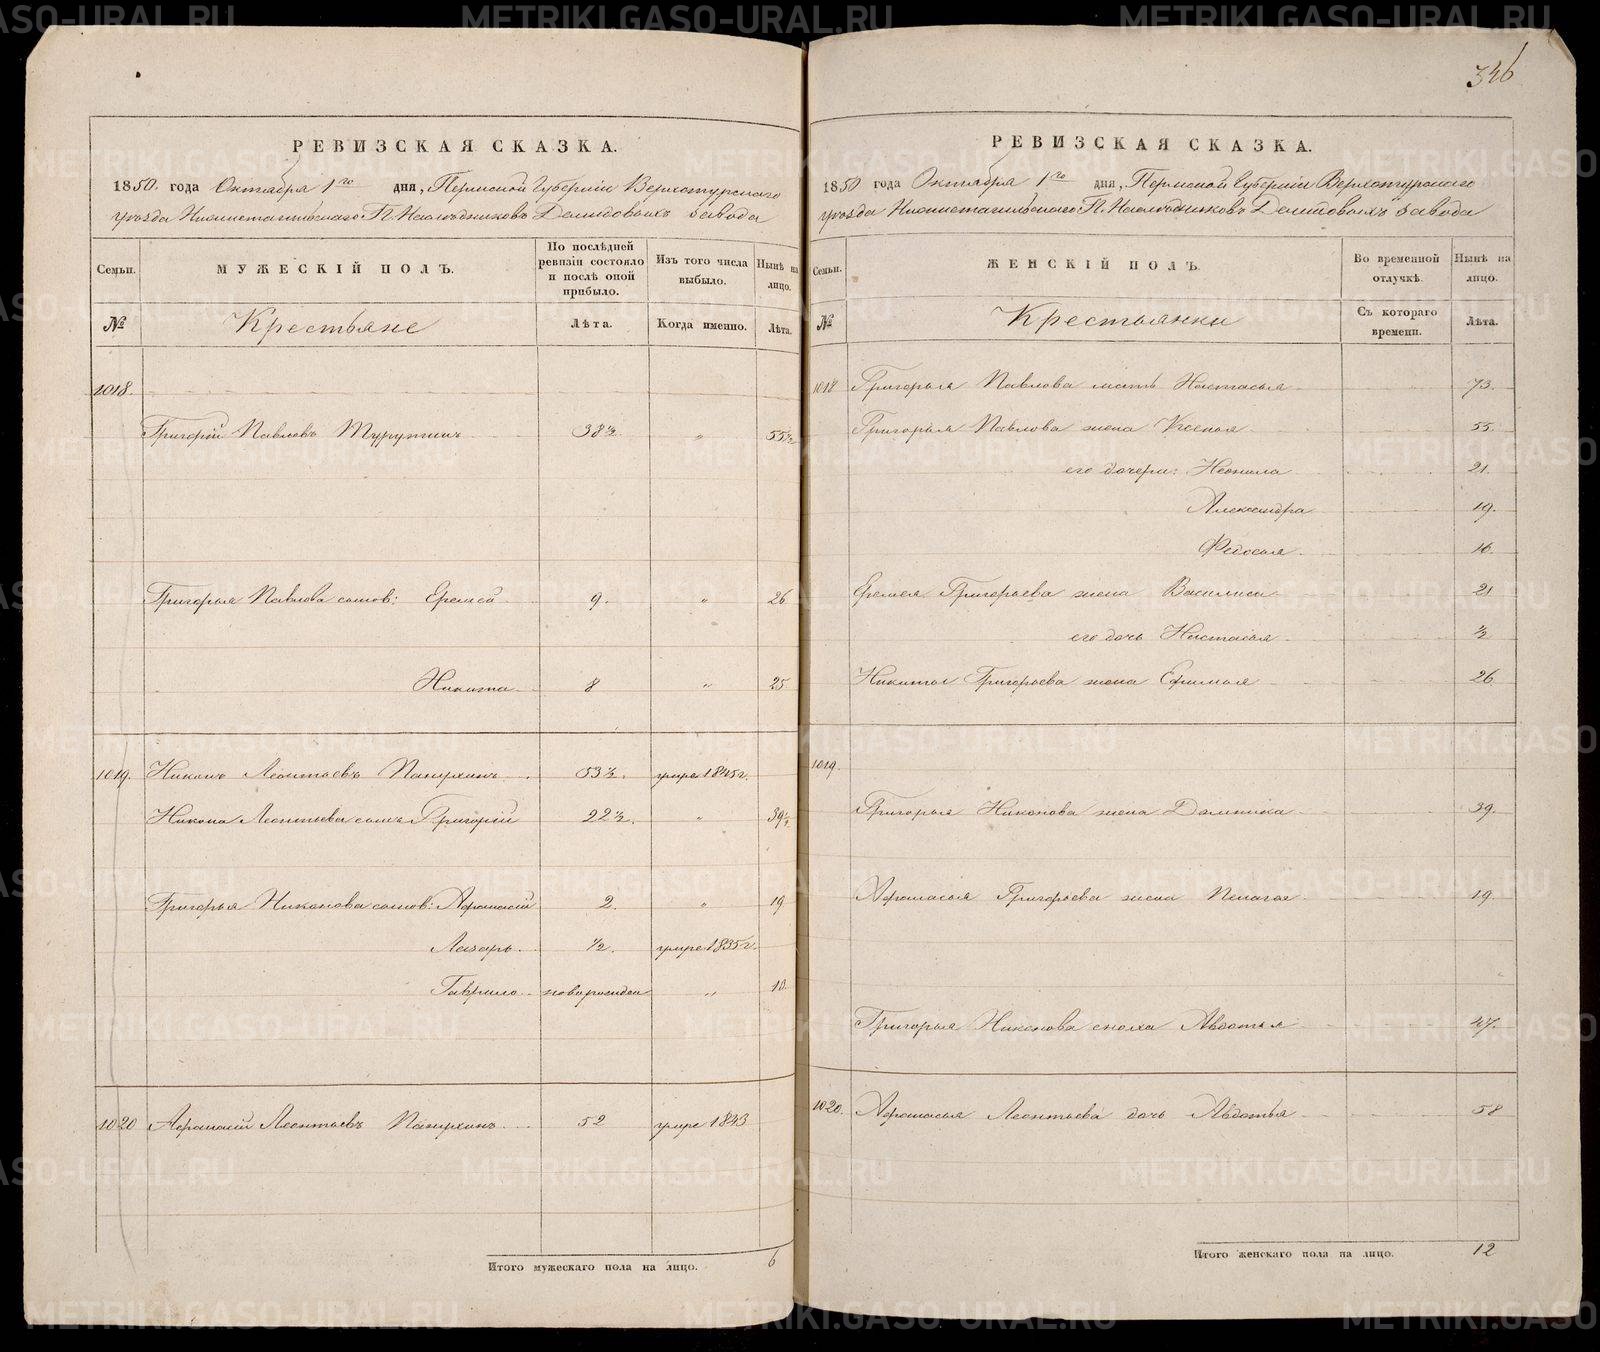 346
РЕВИЗСКАЯ СКАЗКА.
1850. года Октября 1го дня, Пермской Губернiи Верхотурскаго
уѣзда Нижнетагильскаго Г.П. Наслѣдниковъ Демидовыхъ завода
Семьи.
МУЖЕСКIЙ ПОЛЪ.
По послѣдней ревизiи состояло и послѣ оной прибыло.
Изъ того числа выбыло.
Нынѣ на лицо.
№
Крестьяне
Лѣта.
Когда именно.
Лѣта.
1018.
Григорiй Павловъ 38½ " 55½
Григорья Павлова сынов: Еремей 9. " 26
Никита 8 " 25
1019. Никонъ Леонтьевъ Панухинъ 53½. умре 1845г.
Никона Леонтьева сынъ Григорiй 22½. " 39½
Григорья Никонова сынов: Афонасiй 2. " 19
Лазарь. ½. умре 1835г.
Гаврило новорожден " 10.
1020 Афонасiй Леонтьевъ Панухинъ 52 умре 1843
Итого мужескаго пола на лицо. 6
РЕВИЗСКАЯ СКАЗКА.
1850 года Октября 1го дня, Пермской Губернiи Верхотурскаго
уѣзда Нижнетагильскаго Г.П. Наслѣдниковъ Демидовыхъ завода
Семьи.
ЖЕНСКIЙ ПОЛЪ.
Во временной отлучкѣ.
Нынѣ на лицо.
№
Крестьянки
Съ котораго времени.
Лѣта.
1018 Григорья Павлова мать Настасья 73.
Григорья Павлова жена Ксенья 55.
его дочери: Неонила 21.
Александра 19.
Федосья 16.
Еремея Григорьева жена Василиса 21
его дочь Настасья ½
Никиты Григорьева жена Ефимья 26
1019.
Григорья Никонова жена Домника 39.
Афонасья Григорьева жена Пелагея 19.
Григорья Никонова сноха Авдотья 47.
1020. Афонасья Леонтьева дочь Авдотья 58
Итого женскаго пола на лицо. 12
METRIKI.GASO-URAL.RU